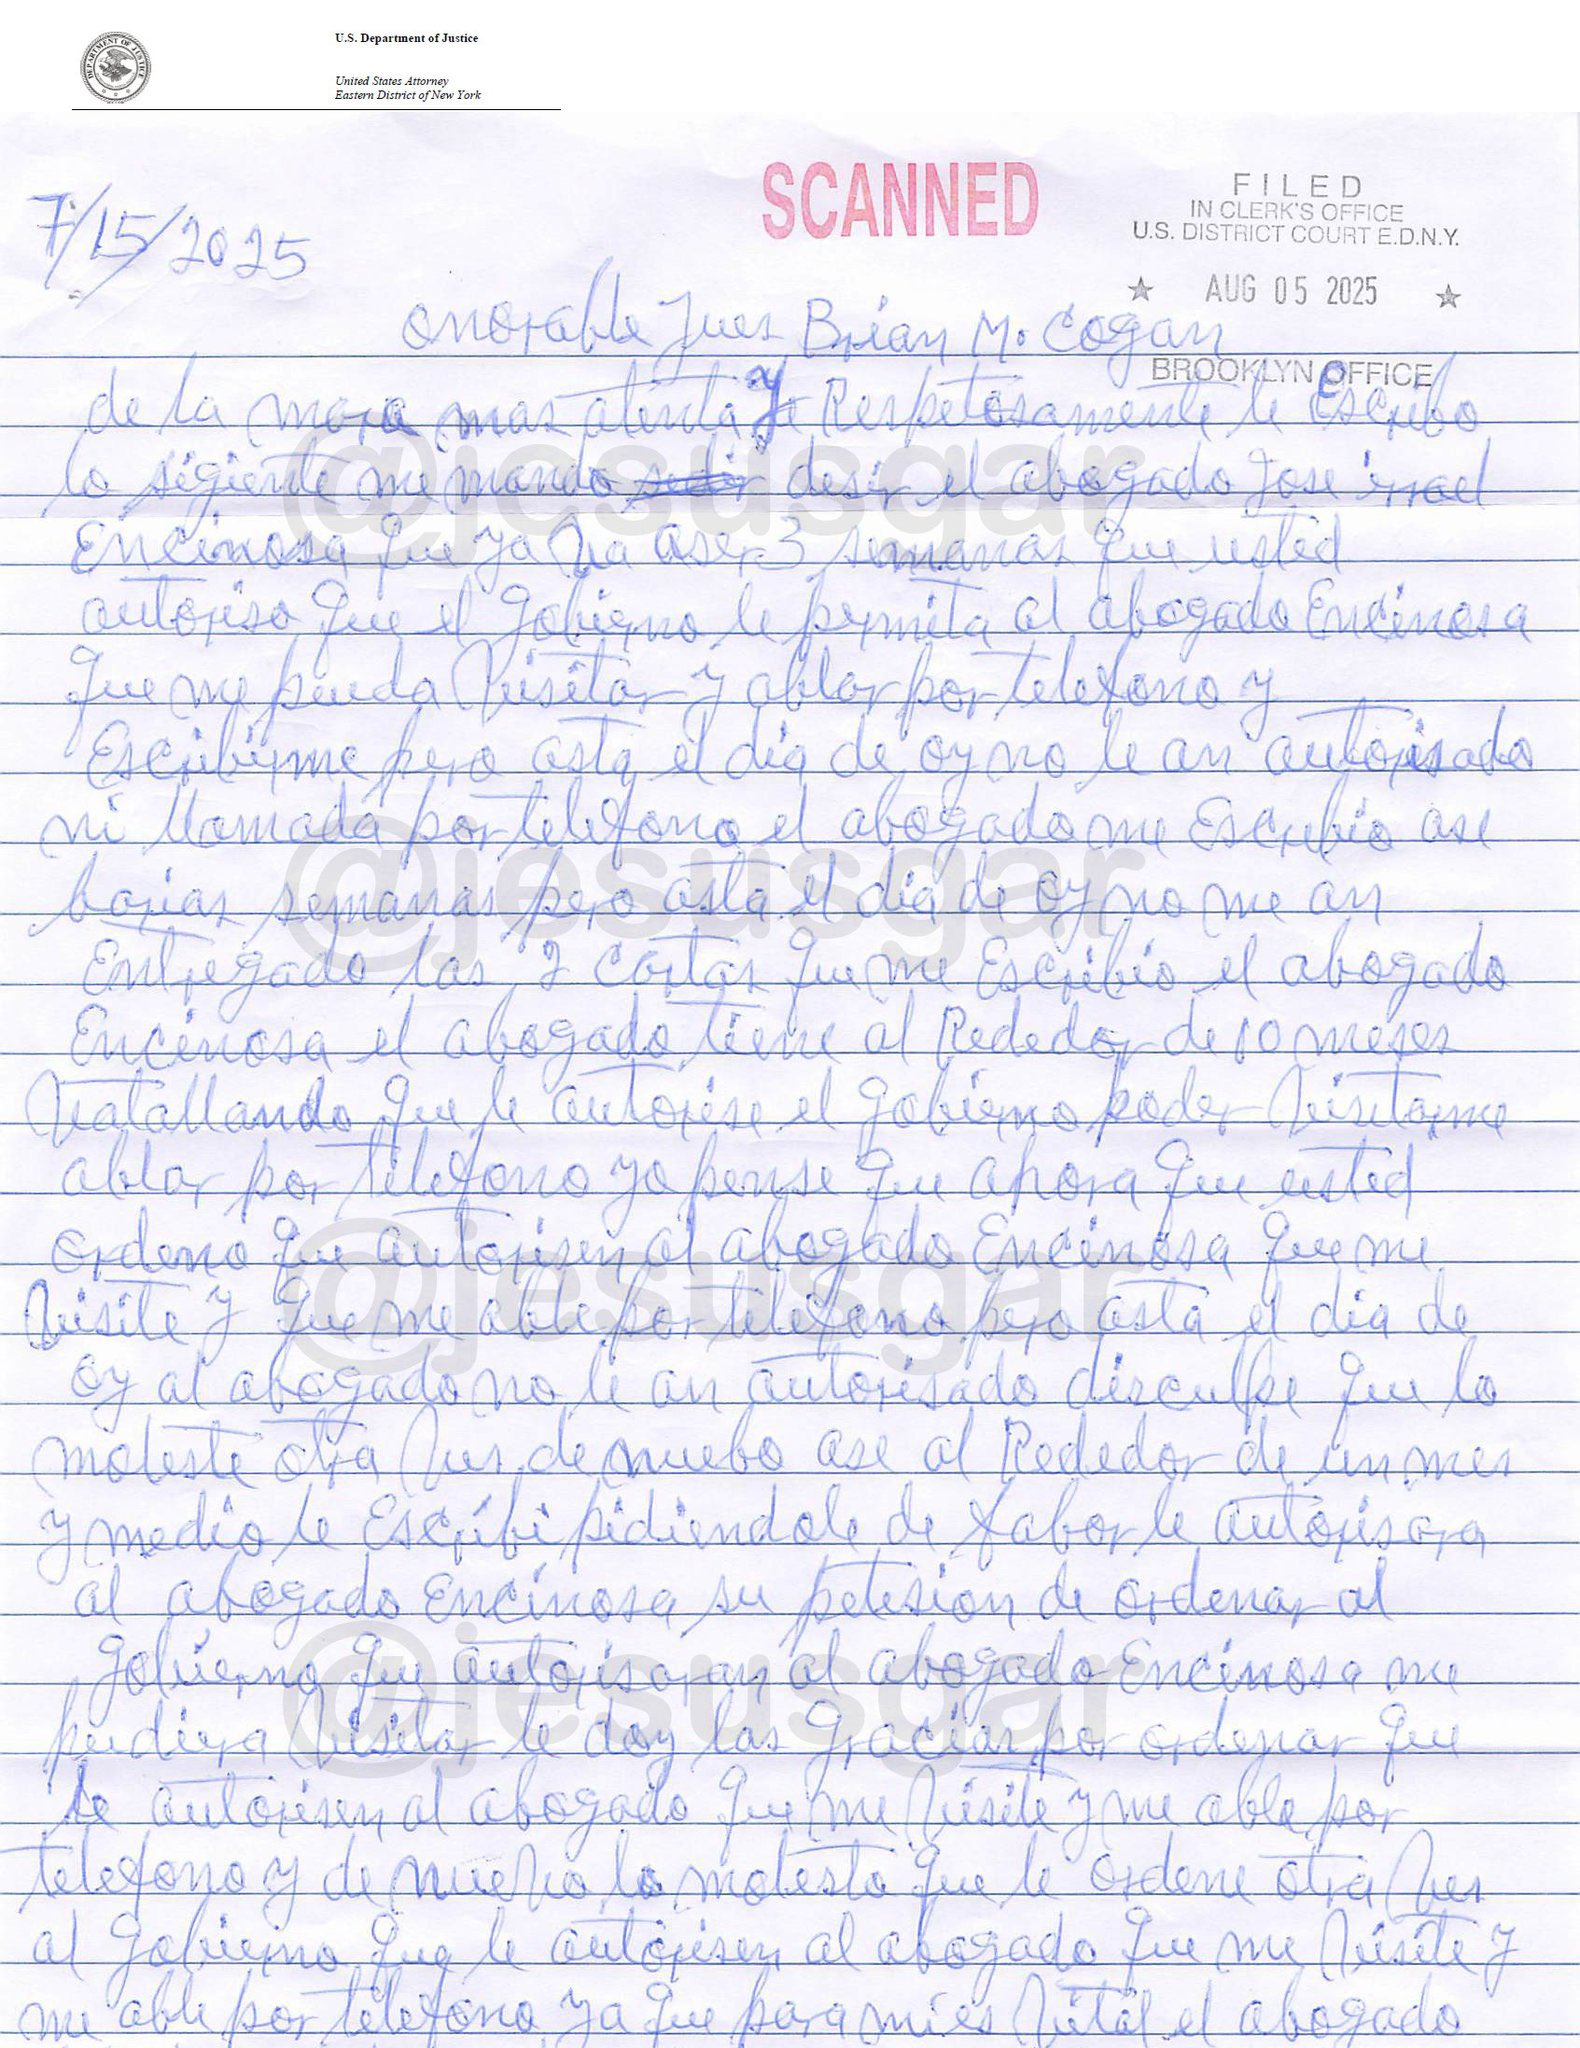 U.S. Department of Justice
United States Attorney
Eastern District of New York
SCANNED
FILED
IN CLERK'S OFFICE
U.S. DISTRICT COURT E.D.N.Y.
★ AUG 05 2025 ★
BROOKLYN OFFICE
7/15/2025
onorable Jues Brian M. Cogan
de la mara mas atenta y Respetosamente le Escribo
lo sigiente me mando desir el abogado Jose irrael
Encinosa que ya ba aser 3 semanas que usted
autoriso que el gobierno le permita al abogado Encinosa
que me pueda Visitar y ablar por telefono y
Escribirme pero asta el dia de oy no le an autorisado
ni llamada por telefono el abogado me Escribio ase
barias semanas pero asta el dia de oy no me an
Entregado las 2 cartas que me Escribio el abogado
Encinosa el abogado tiene al Rededor de 10 meses
Vatallando que le autorise el gobierno poder Visitarme
ablar por telefono yo pense que ahora que usted
ordeno que autorisen al abogado Encinosa que me
Visite y que me able por telefono pero asta el dia de
oy al abogado no le an autorisado disculpe que lo
moleste otra Ves de nuebo ase al Rededor de un mes
y medio le Escribi pidiendole de fabor le autorisara
al abogado Encinosa su petesion de ordenar al
gobierno que autorisaran al abogado Encinosa me
pudiera Visitar le doy las gracias por ordenar que
le autorisen al abogado que me Visite y me able por
telefono y de nueVo lo molesto que le ordene otra Ves
al gobierno que le autorisen al abogado que me Visite y
me able por telefono ya que para mi es Vital el abogado
@jesusgar
@jesusgar
@jesusgar
@jesusgar